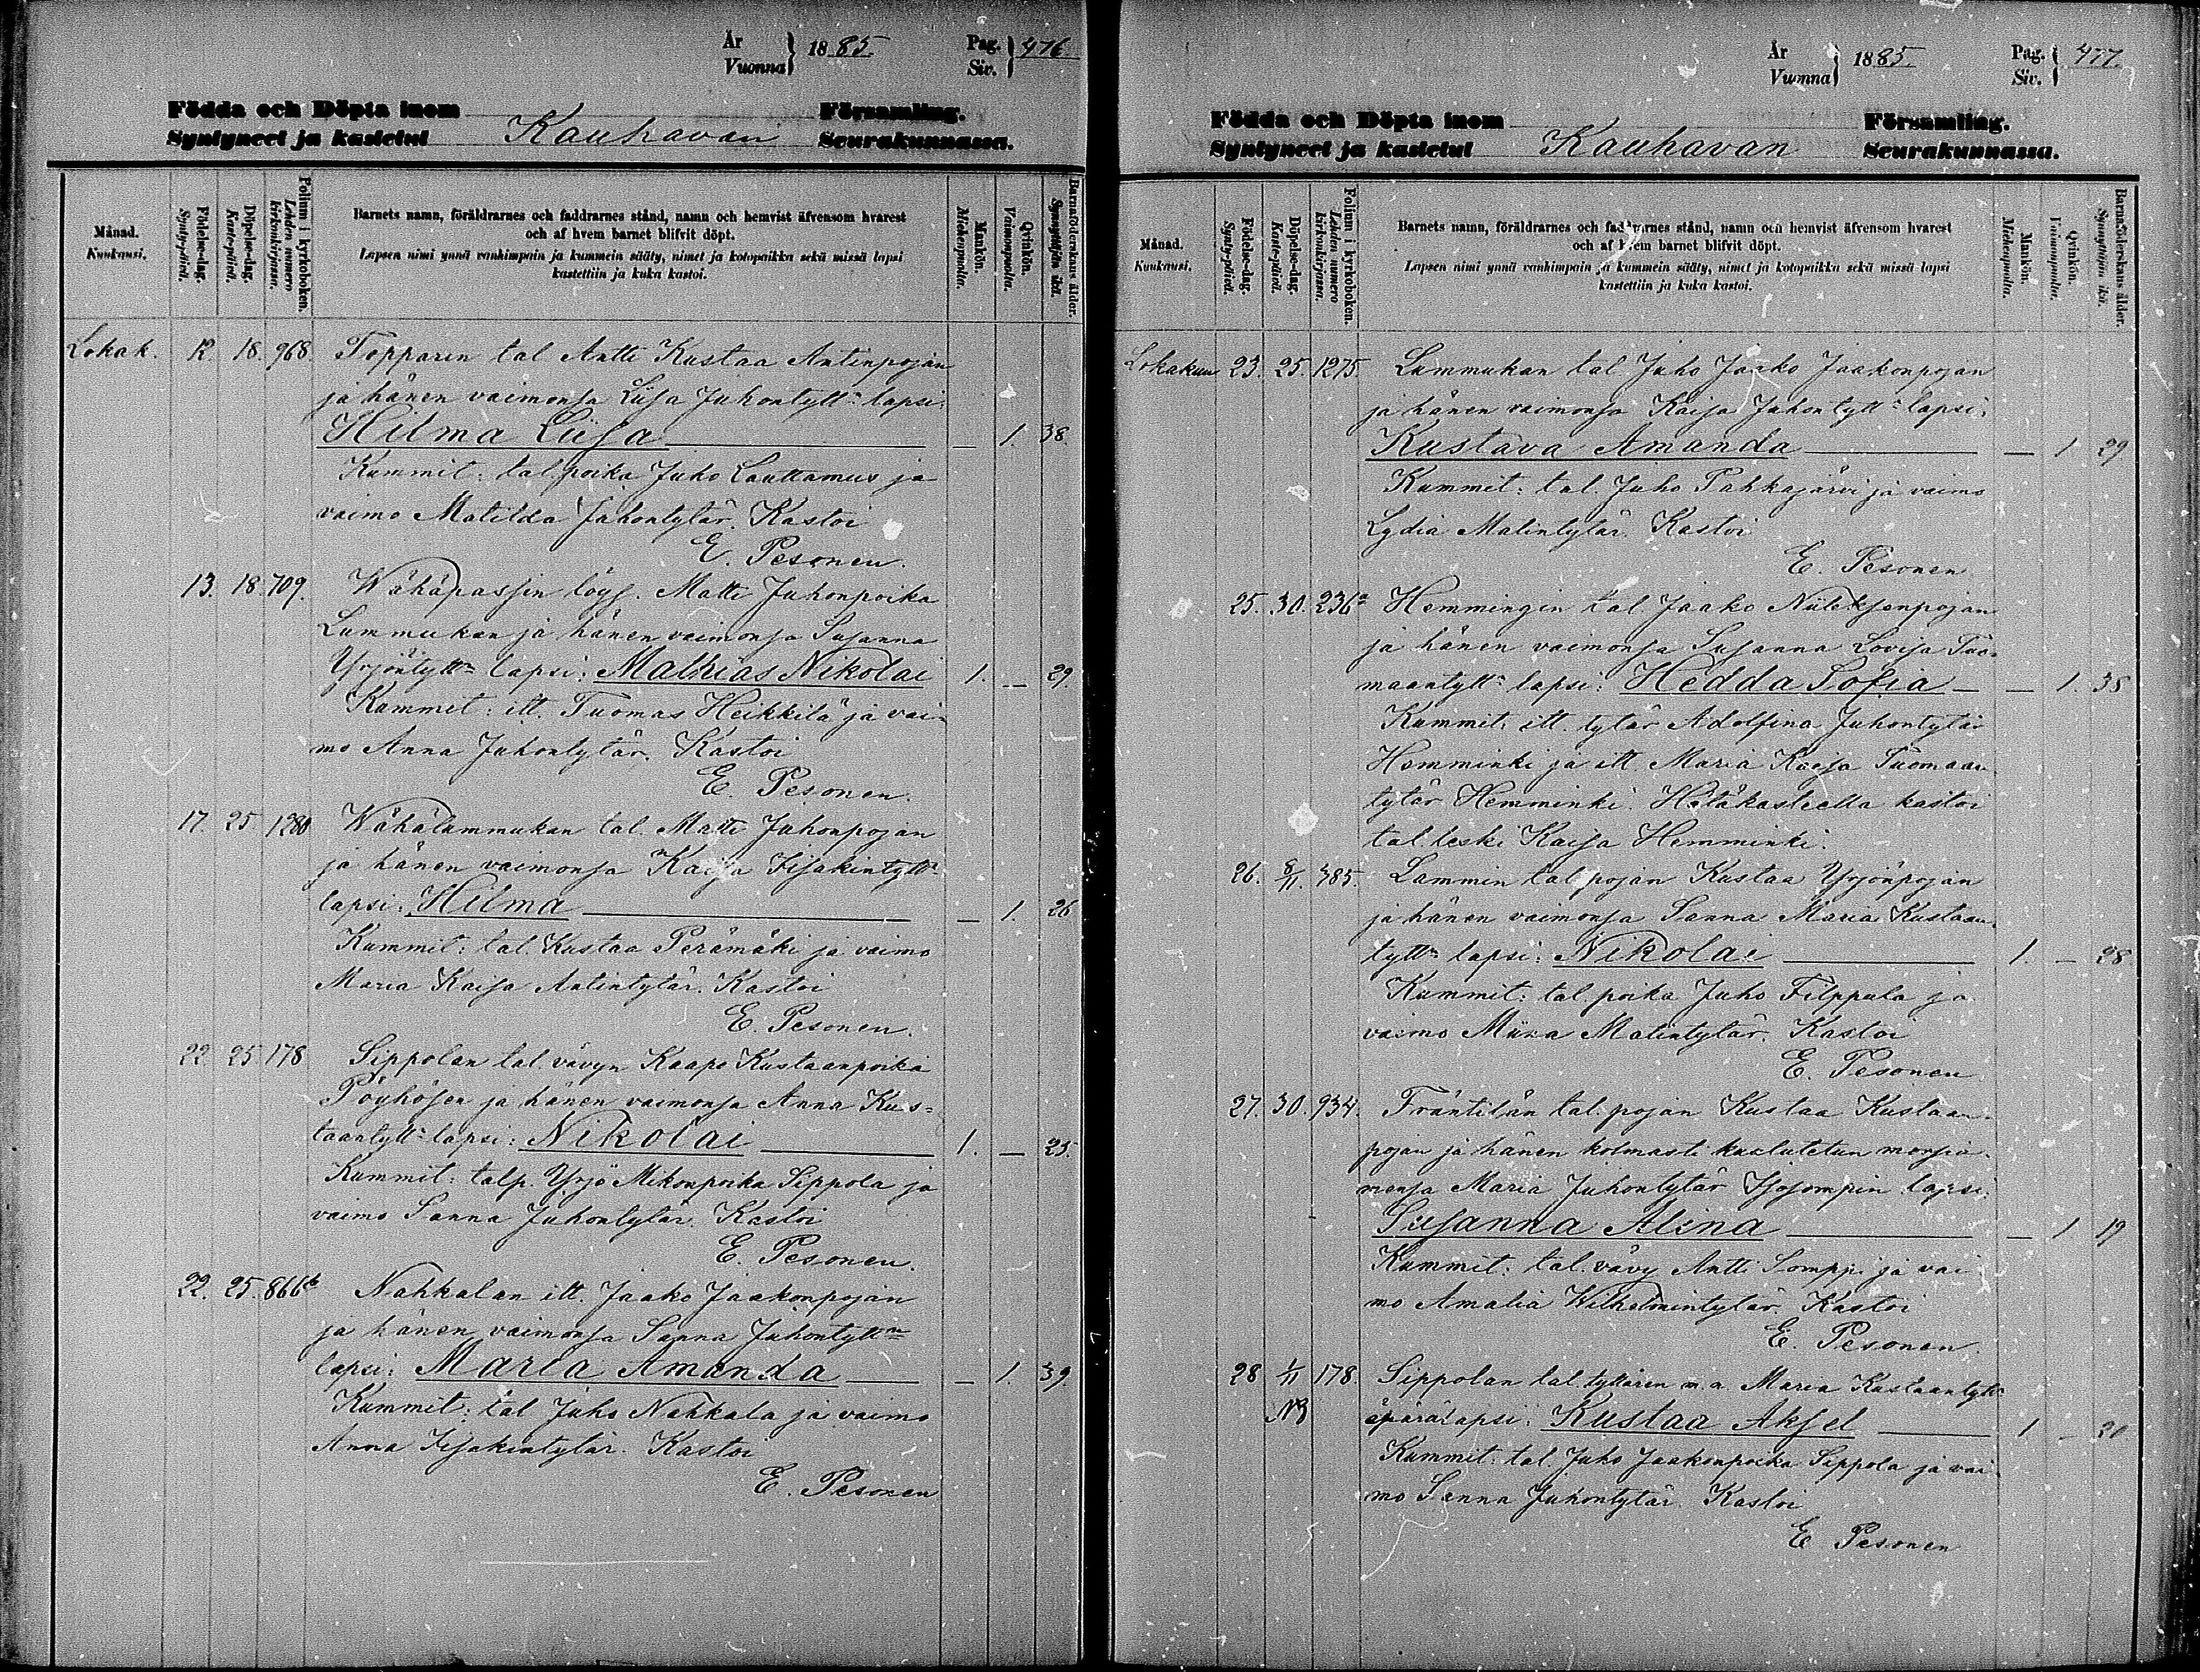 År
Vuonna } 1885. Pag.
Siv. } 476
Födda och Döpta inom Församling.
Syntyneet ja kastetut Kauhavan Seurakunnassa.
Månad.
Kuukausi.
Födelse-dag.
Synty-päivä.
Döpelse-dag.
Kaste-päivä.
Folium i kyrkoboken.
Lehden numero kirkonkirjassa.
Barnets namn, föräldrarnes och faddrarnes stånd, namn och hemvist äfvensom hvarest
och af hvem barnet blifvit döpt.
Lapsen nimi ynnä vanhimpain ja kummein sääty, nimet ja kotopaikka sekä missä lapsi
kastettiin ja kuka kastoi.
Mankön.
Miehenpuolta.
Qvinkön.
Vaimonpuolta.
Barnaföderskans ålder.
Synnyttäjän ikä.
Lokak. 12 18. 968. Topparin tal Antti Kustaa Antinpojan
ja hänen vaimonsa Liisa Juhontytt:n lapsi:
Hilma Liisa — 1. 38.
Kummit: tal. poika Juho Lauttamus ja
vaimo Matilda Juhontytär. Kastoi
E. Pesonen.
13. 18. 709. Wähäpassin löys. Matti Juhonpoika
Lummukan ja hänen vaimonsa Susanna
Yrjöntytt:n lapsi: Mathias Nikolai 1. — 29.
Kummit: itt. Tuomas Heikkilä ja vai-
mo Anna Juhontytär. Kastoi
E. Pesonen.
17. 25. 1280 Wähälummukan tal. Matti Juhonpojan
ja hänen vaimonsa Kaisa Iisakintytt:n
lapsi: Hilma — 1. 26
Kummit: tal. Kustaa Perämäki ja vaimo
Maria Kaisa Antintytär. Kastoi
E. Pesonen.
22. 25. 178 Sippolan tal. vävyn Kaapo Kustaanpoika
Pöyhösen ja hänen vaimonsa Anna Kus=
taantytt:n lapsi: Nikolai 1. — 25.
Kummit: talp. Yrjö Mikonpoika Sippola ja
vaimo Sanna Juhontytär. Kastoi
E. Pesonen.
22. 25. 866b Nahkalan itt. Jaako Jaakonpojan
ja hänen vaimonsa Sanna Juhontytt:n
lapsi: Maria Amanda — 1. 39.
Kummit: tal Juho Nahkala ja vaimo
Anna Iisakintytär. Kastoi
E. Pesonen
År
Vuonna } 1885. Pag.
Siv. } 477.
Födda och Döpta inom Församling.
Syntyneet ja kastetut Kauhavan Seurakunnassa.
Månad.
Kuukausi.
Födelse-dag.
Synty-päivä.
Döpelse-dag.
Kaste-päivä.
Folium i kyrkoboken.
Lehden numero kirkonkirjassa.
Barnets namn, föräldrarnes och faddrarnes stånd, namn och hemvist äfvensom hvarest
och af hvem barnet blifvit döpt.
Lapsen nimi ynnä vanhimpain ja kummein sääty, nimet ja kotopaikka sekä missä lapsi
kastettiin ja kuka kastoi.
Mankön.
Miehenpuolta.
Qvinkön.
Vaimonpuolta.
Barnaföderskans ålder.
Synnyttäjän ikä.
Lokakuu 23. 25. 1275 Lummukan tal Juho Jaako Jaakonpojan
ja hänen vaimonsa Kaisa Juhontytt:n lapsi:
Kustava Amanda — 1 29
Kummit: tal. Juho Pahkajärvi ja vaimo
Lydia Matintytär. Kastoi
E. Pesonen
25. 30. 236a Hemmingin tal Jaako Niileksenpojan
ja hänen vaimonsa Susanna Lovisa Tuo-
maantytt:n lapsi: Hedda Sofia — 1. 38
Kummit: itt. tytär Adolfina Juhontytär
Hemminki ja itt. Maria Kaisa Tuomaan-
tytär Hemminki. Hätäkasteella kastoi
tal. leski Kaisa Hemminki.
26. 8/11. 485. Lammin tal. pojan Kustaa Yrjönpojan
ja hänen vaimonsa Sanna Maria Kustaan-
tytt:n lapsi: Nikolai 1. — 28
Kummit: tal. poika Juho Filppula ja
vaimo Miina Matintytär. Kastoi
E. Pesonen
27. 30. 934. Fräntilän tal. pojan Kustaa Kustaan-
pojan ja hänen kolmasti kuulutetun morsia-
mensa Maria Juhontytär Isosompin lapsi:
Susanna Alina — 1 19
Kummit: tal. vävy Antti Somppi ja vai
mo Amalia Wilhelmintytär. Kastoi
E. Pesonen.
28 1/11 178. Sippolan tal. tyttären m. a. Maria Kustaantytt:n
NB äpärälapsi: Kustaa Aksel 1 —
Kummit: tal. Juho Jaakonpoika Sippola ja vai-
mo Sanna Juhontytär. Kastoi
E Pesonen